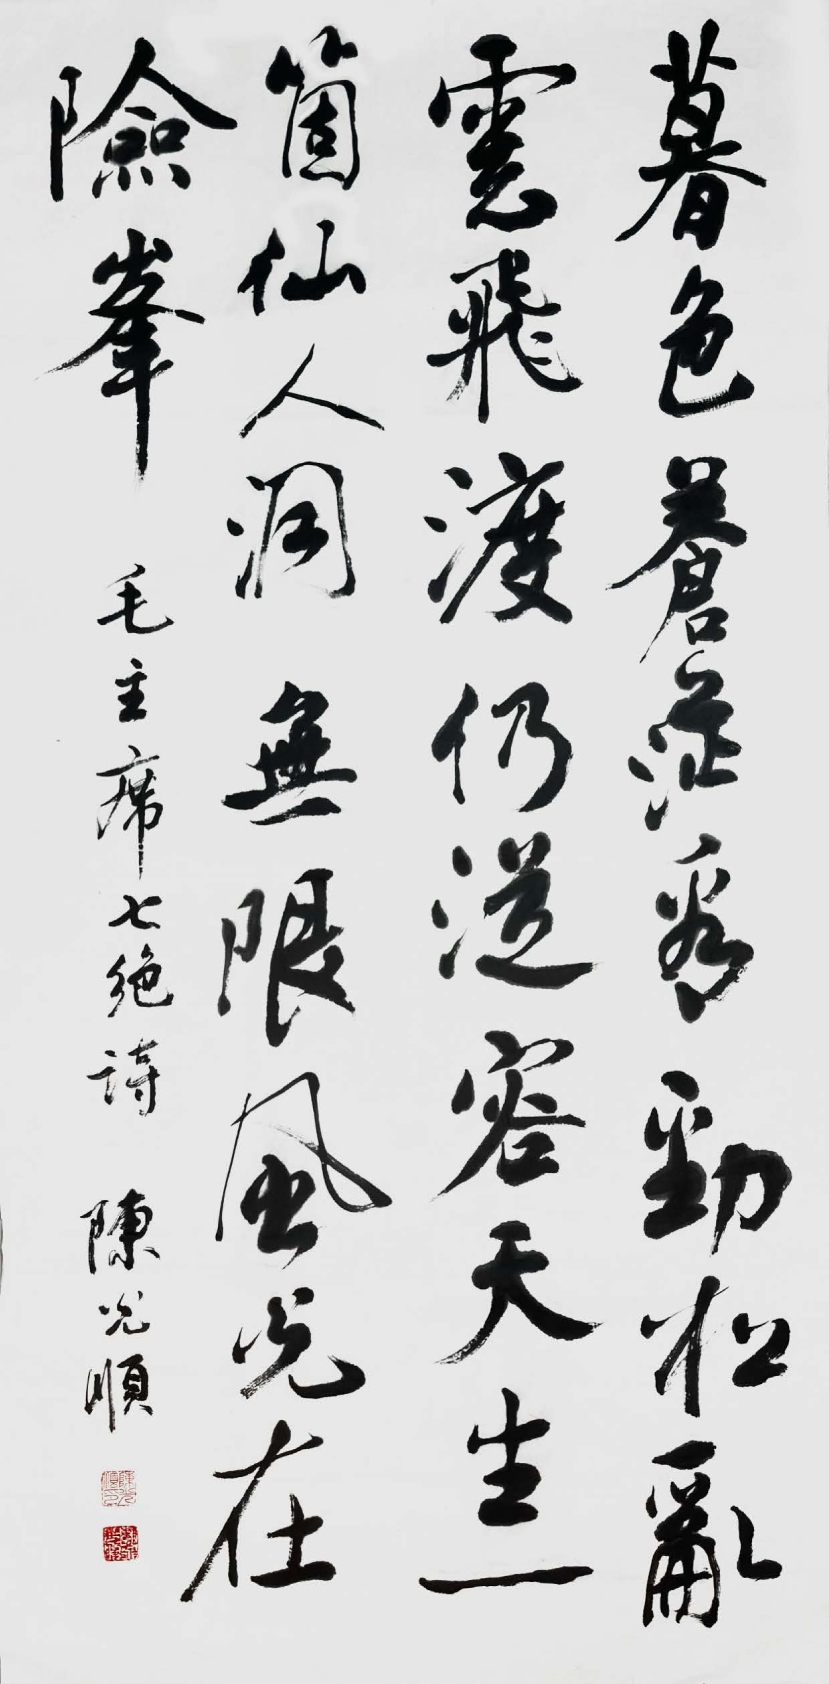 暮色蒼茫看勁松亂
雲飛渡仍從容天生一
箇仙人洞無限風光在
險峯
毛主席七絶詩 陳光順